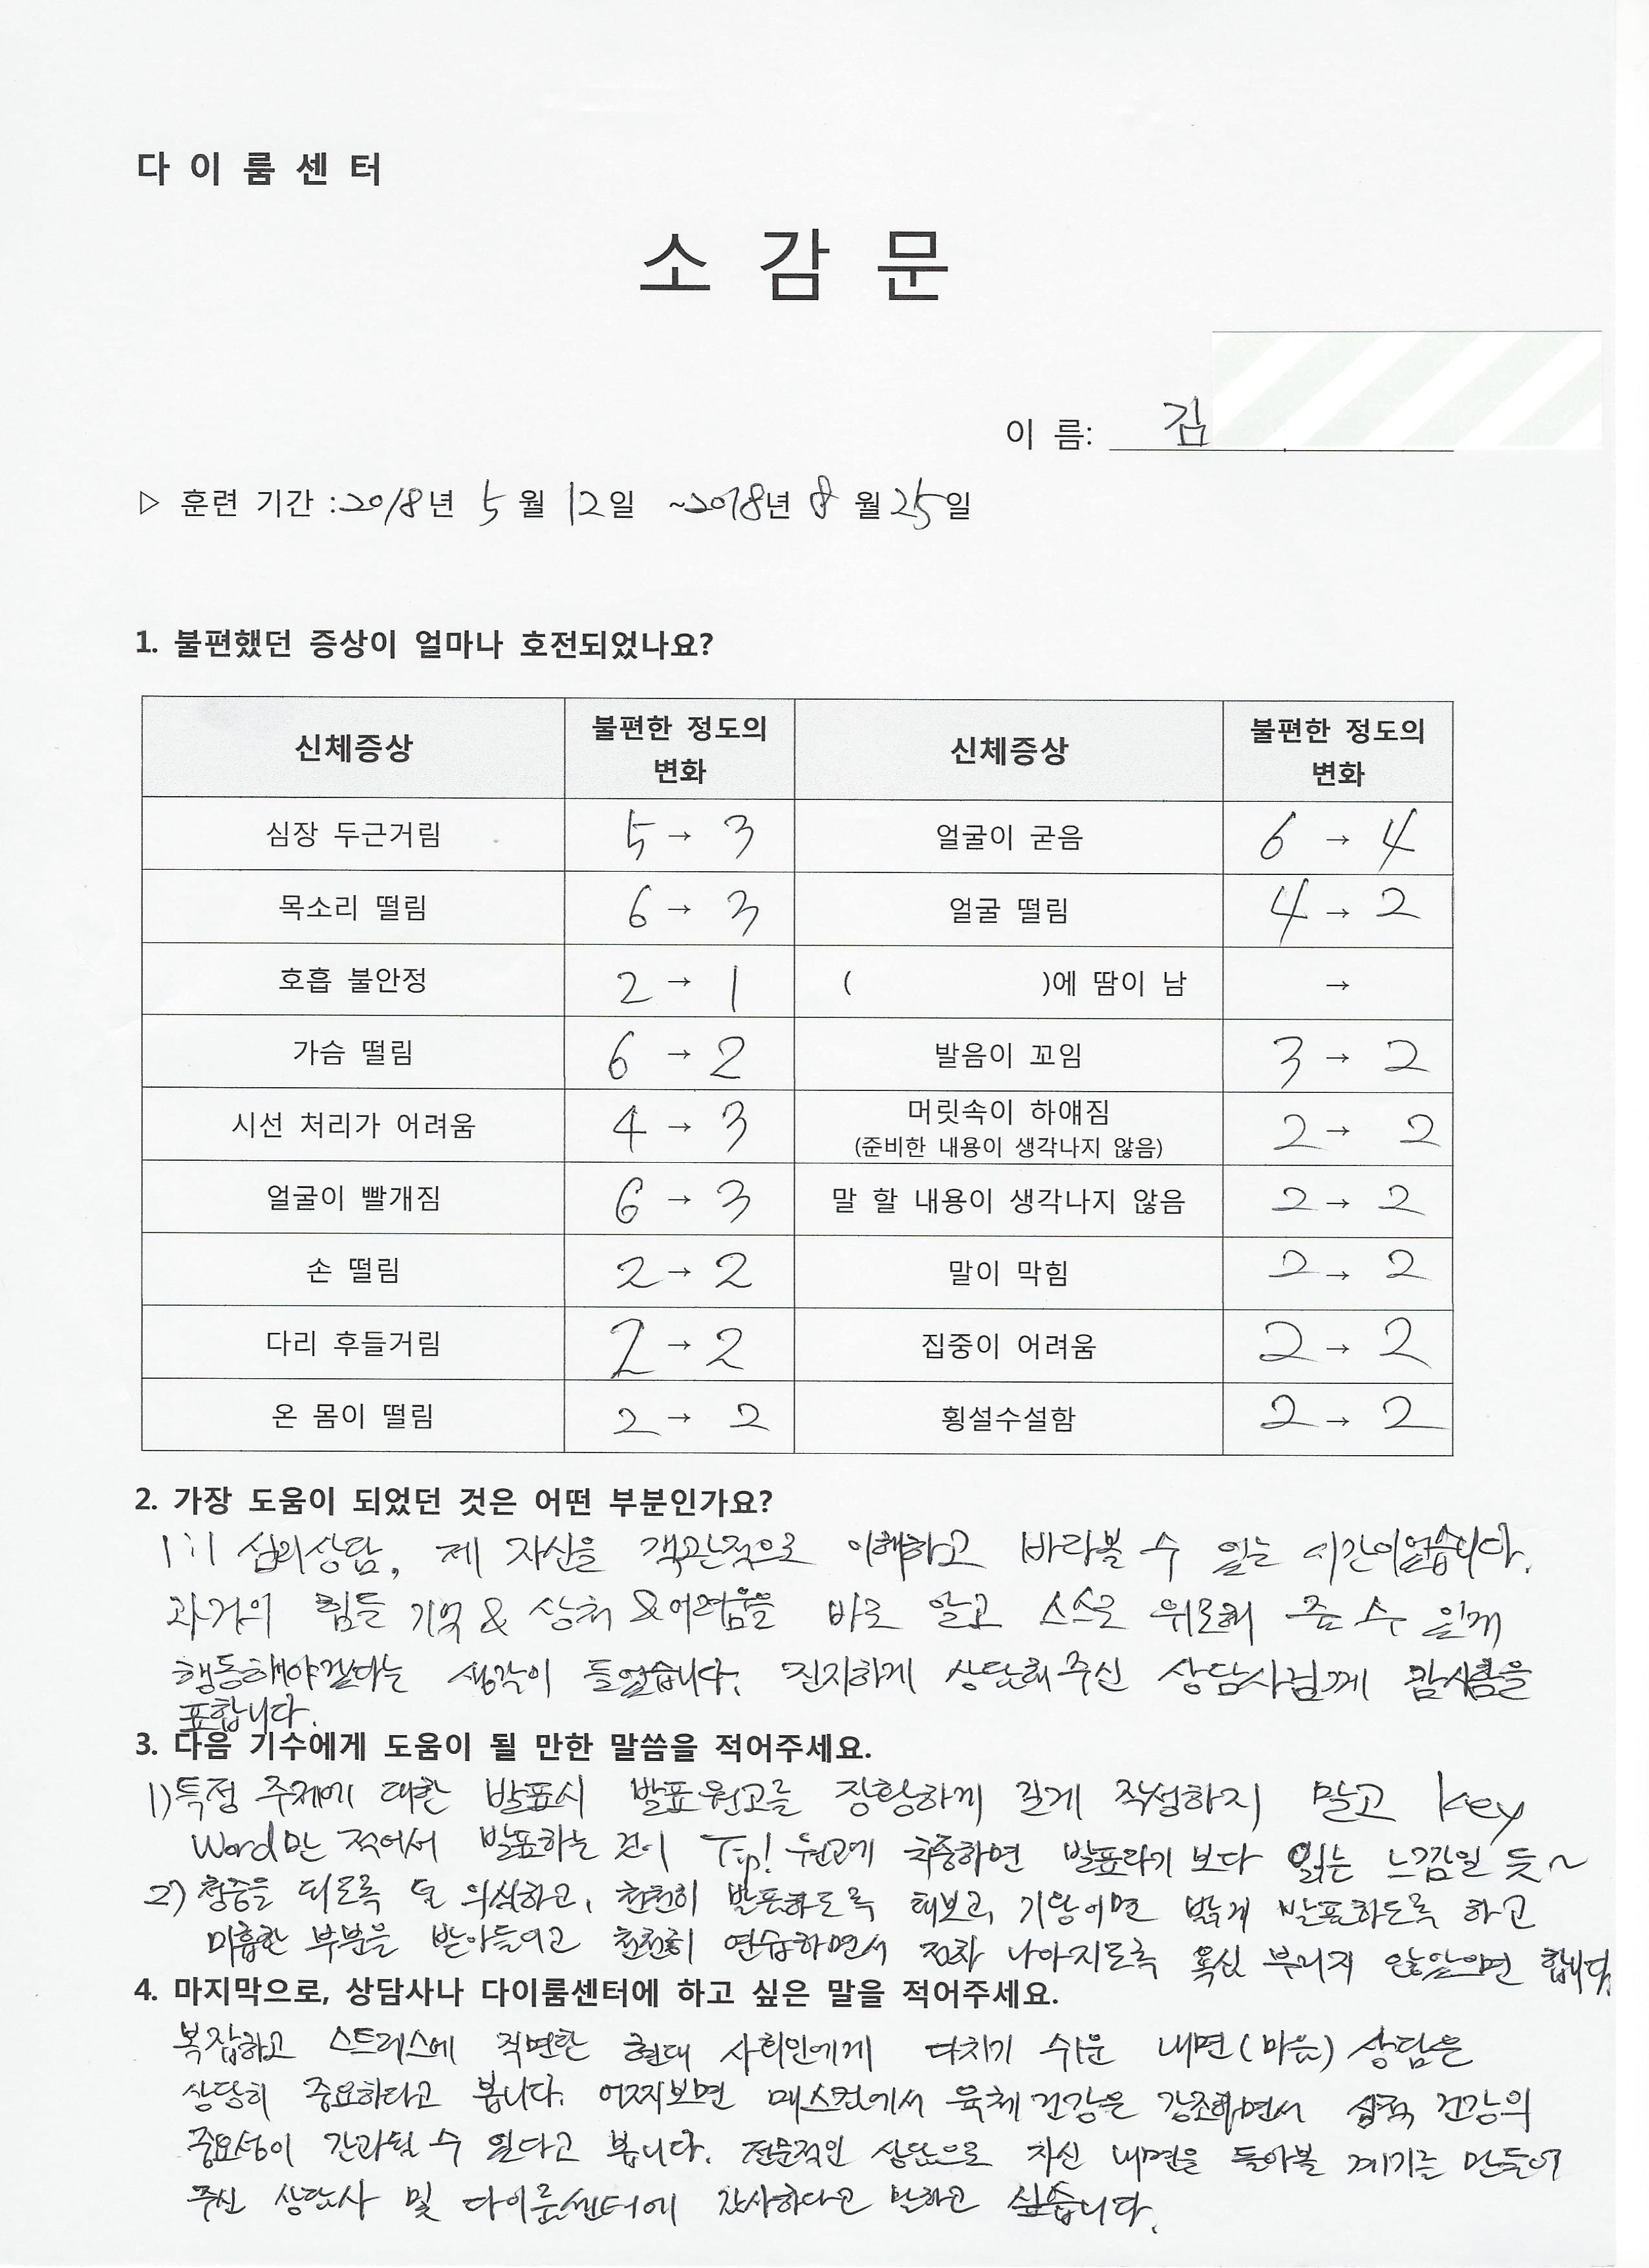 다이룸센터
소감문
이 름: 김
▷ 훈련 기간 : 2018년 5월 12일 ~2018년 8월 25일
1. 불편했던 증상이 얼마나 호전되었나요?
신체증상 불편한 정도의 변화 신체증상 불편한 정도의 변화
심장 두근거림 5 → 3 얼굴이 굳음 6 → 4
목소리 떨림 6 → 3 얼굴 떨림 4 → 2
호흡 불안정 2 → 1 ( )에 땀이 남 →
가슴 떨림 6 → 2 발음이 꼬임 3 → 2
시선 처리가 어려움 4 → 3 머릿속이 하얘짐 (준비한 내용이 생각나지 않음) 2 → 2
얼굴이 빨개짐 6 → 3 말 할 내용이 생각나지 않음 2 → 2
손 떨림 2 → 2 말이 막힘 2 → 2
다리 후들거림 2 → 2 집중이 어려움 2 → 2
온 몸이 떨림 2 → 2 횡설수설함 2 → 2
2. 가장 도움이 되었던 것은 어떤 부분인가요?
1:1 심리상담, 제 자신을 객관적으로 이해하고 바라볼 수 있는 시간이었습니다.
과거의 힘든 기억 & 상처 & 어려움을 바로 알고 스스로 위로해 줄 수 있게
행동해야겠다는 생각이 들었습니다. 진지하게 상담해 주신 상담사님께 감사함을
표합니다.
3. 다음 기수에게 도움이 될 만한 말씀을 적어주세요.
1) 특정 주제에 대한 발표시 발표원고를 장황하게 길게 작성하지 말고 key
Word만 적어서 발표하는 것이 Tip! 원고에 치중하면 발표라기 보다 읽는 느낌일 듯~
2) 청중을 되도록 덜 의식하고, 천천히 발표하도록 해보고, 기왕이면 밝게 발표하도록 하고
미흡한 부분을 받아들이고 천천히 연습하면서 점차 나아지도록 욕심 부리지 않았으면 합니다.
4. 마지막으로, 상담사나 다이룸센터에 하고 싶은 말을 적어주세요.
복잡하고 스트레스에 직면한 현대 사회인에게 다치기 쉬운 내면(마음) 상담은
상당히 중요하다고 봅니다. 어찌보면 매스컴에서 육체 건강은 강조하면서 심적 건강의
중요성이 간과될 수 있다고 봅니다. 전문적인 상담으로 자신 내면을 돌아볼 계기를 만들어
주신 상담사 및 다이룸센터에 감사하다고 말하고 싶습니다.